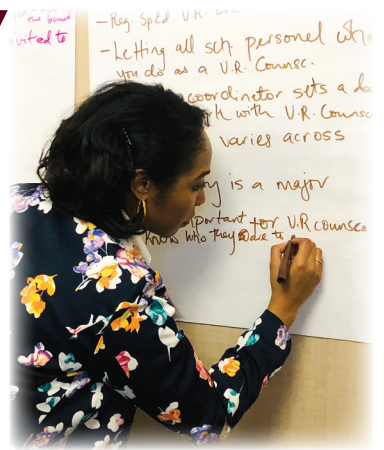 the board
vited to
- Reg Sped V.R.
- Letting all sch. personel who
you do as a V.R. Counsc.
coordinator sets a da
with V.R. Counsc
varies across
y is a major
portant for V.R counse
know who they are to